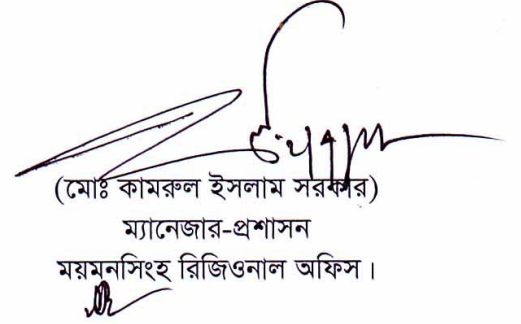 (মোঃ কামরুল ইসলাম সরকার)
ম্যানেজার-প্রশাসন
ময়মনসিংহ রিজিওনাল অফিস।